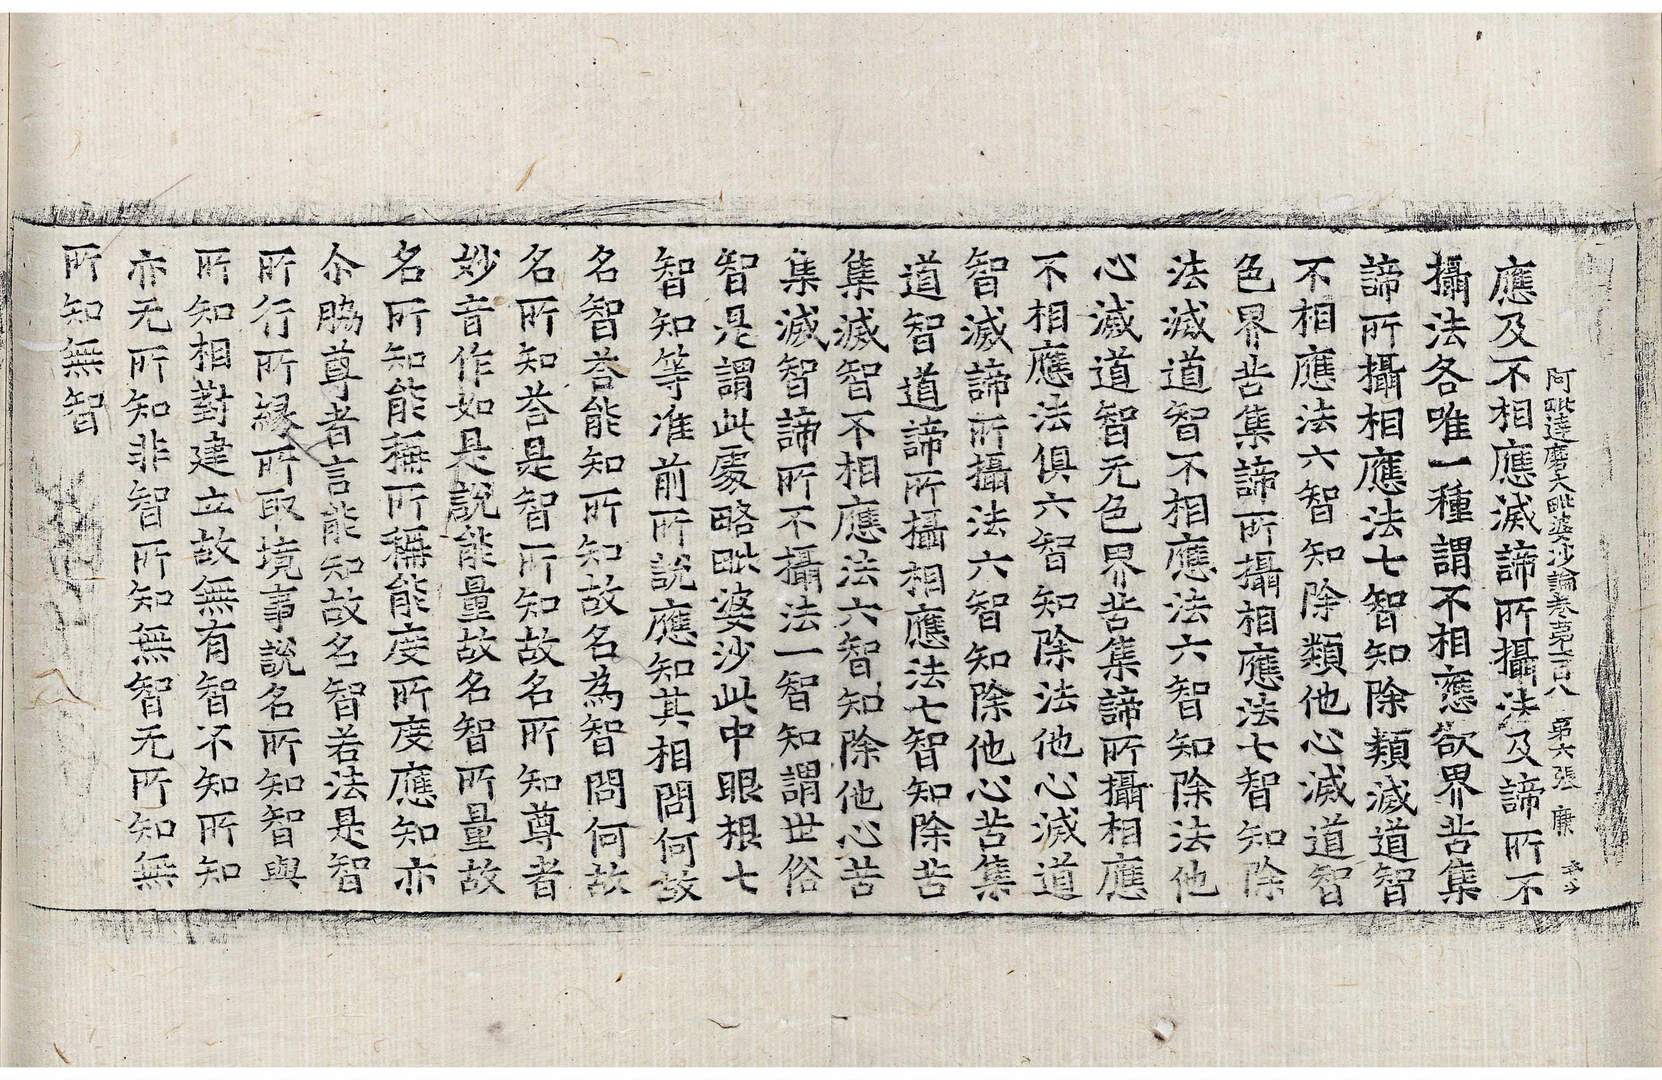 阿毗達磨大毗婆沙論卷第一百八 第六張 庚
應及不相應滅諦所攝法及諦所不
攝法各唯一種謂不相應欲界苦集
諦所攝相應法七智知除類滅道智
不相應法六智知除類他心滅道智
色界苦集諦所攝相應法七智知除
法滅道智不相應法六智知除法他
心滅道智无色界苦集諦所攝相應
不相應法俱六智知除法他心滅道
智滅諦所攝法六智知除他心苦集
道智道諦所攝相應法七智知除苦
集滅智不相應法六智知除他心苦
集滅智諦所不攝法一智知謂世俗
智是謂此處略毗婆沙此中眼根七
智知等准前所說應知其相問何故
名智荅能知所知故名為智問何故
名所知荅是智所知故名所知尊者
妙音作如是說能量故名智所量故
名所知能稱所稱能度所度應知亦
尒脇尊者言能知故名智若法是智
所行所緣所取境事說名所知智與
所知相對建立故無有智不知所知
亦无所知非智所知無智无所知無
所知無智